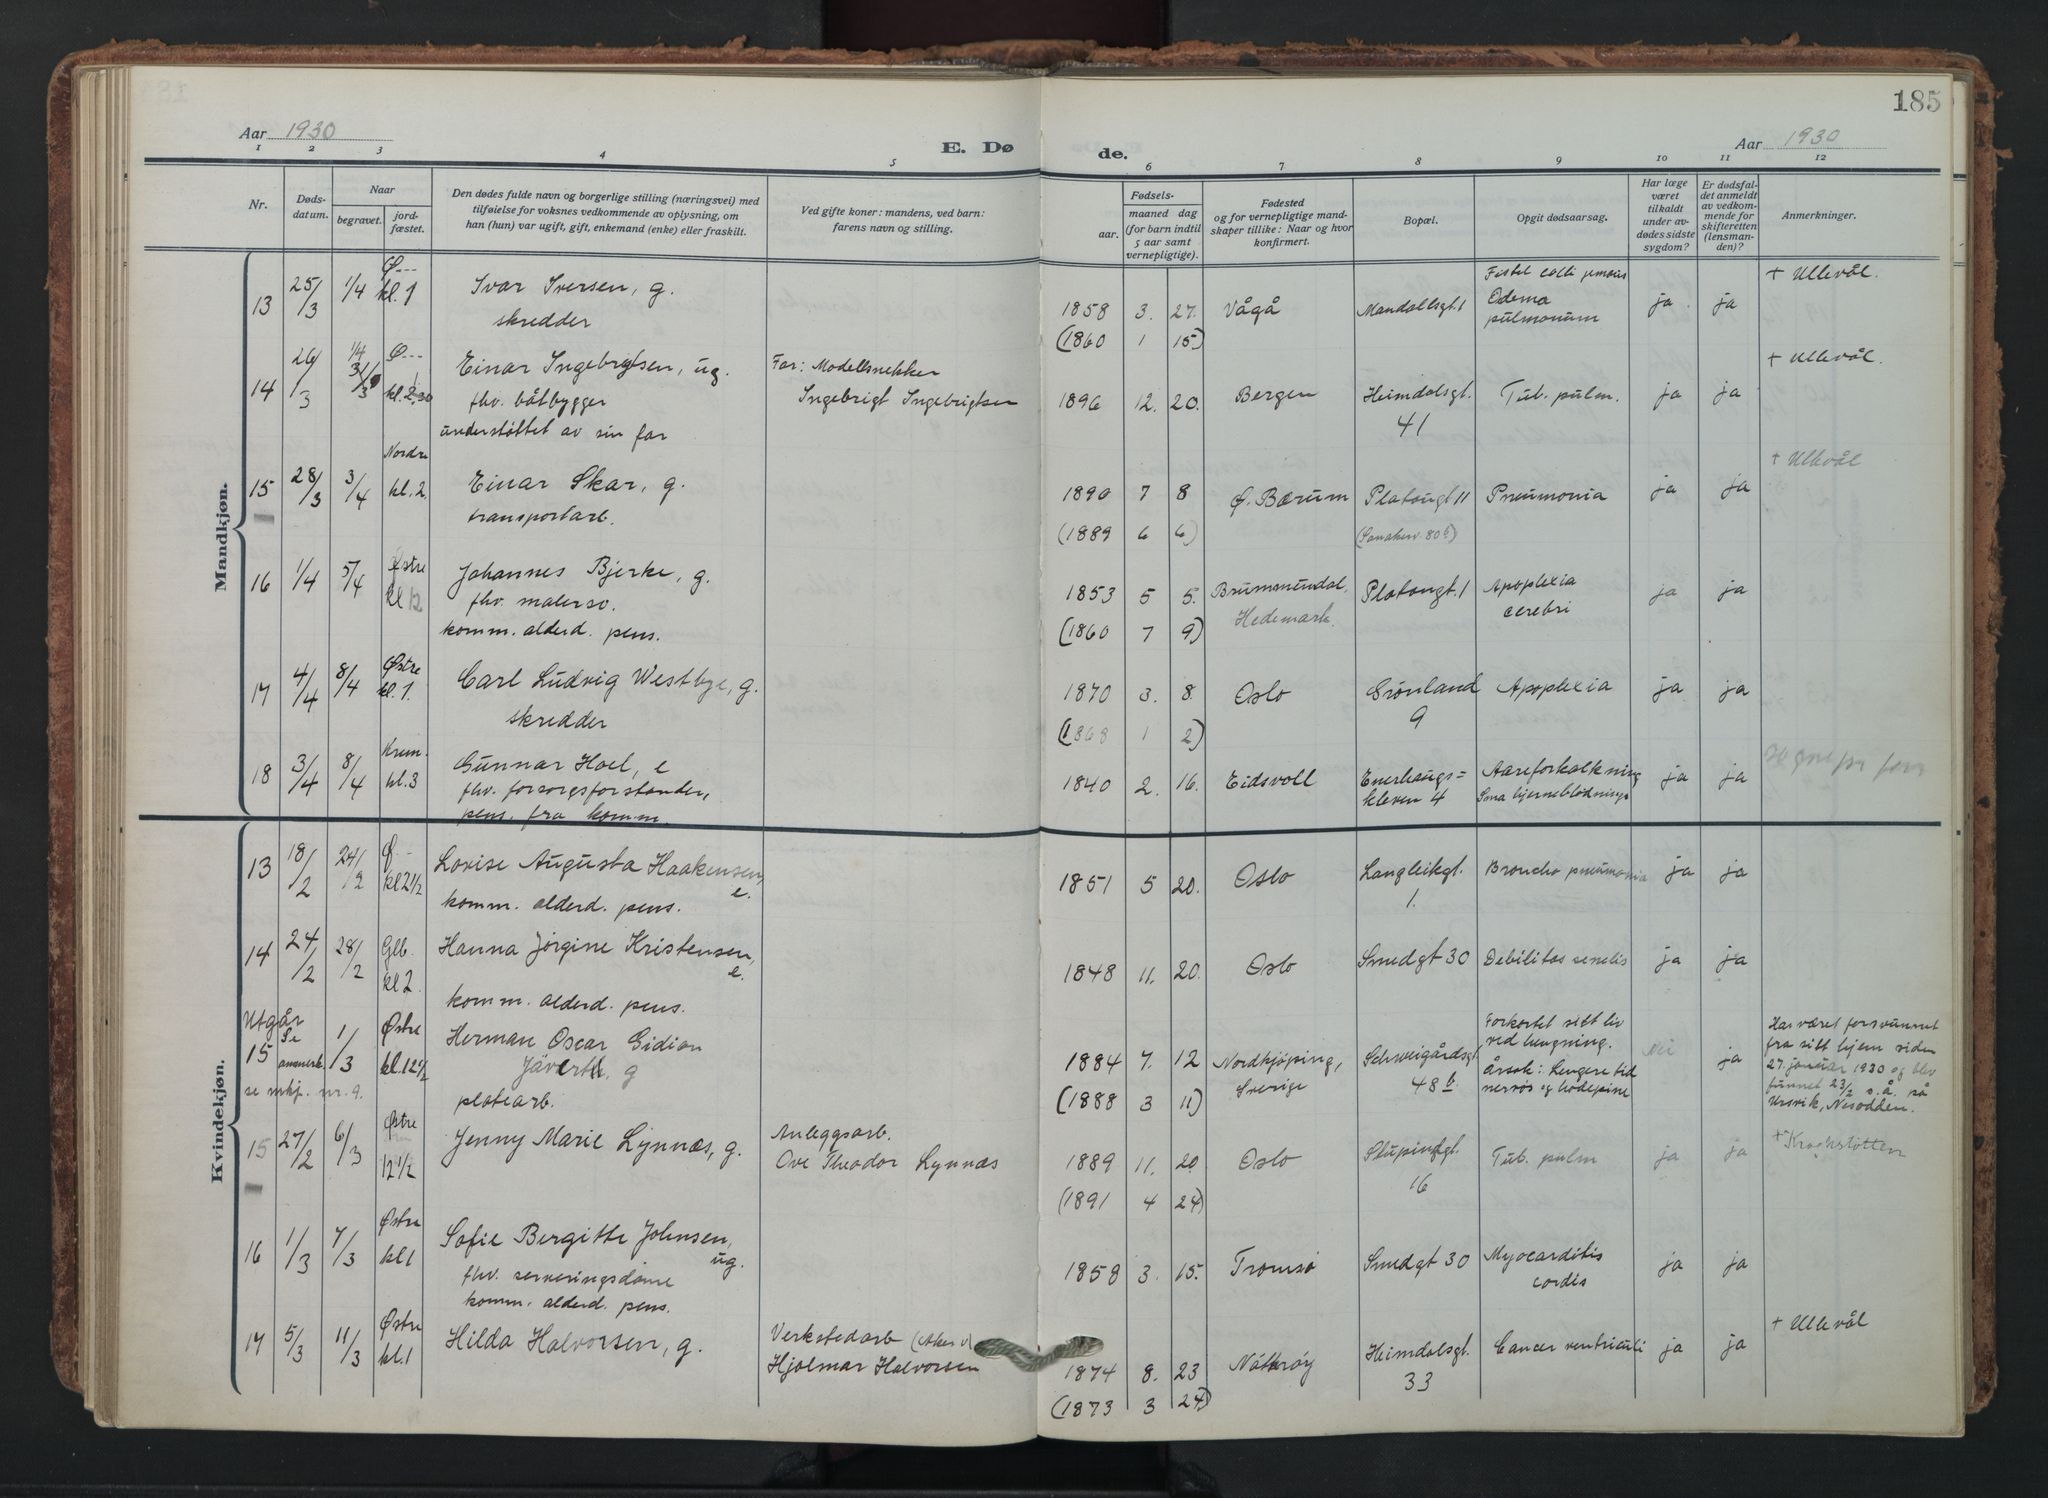 185
Aar 1930
E. Dø
de.
Aar 1930
1 2 3 4 5 6 7 8 9 10 11 12
Nr.
Døds-
datum.
Naar
begravet.
jord-
fæstet.
Den dødes fulde navn og borgerlige stilling (næringsvei) med
tilføielse for voksnes vedkommende av oplysning, om
han (hun) var ugift, gift, enkemand (enke) eller fraskilt.
Ved gifte koner: mandens, ved barn:
farens navn og stilling.
Fødsels-
aar.
maaned dag
(for barn indtil
5 aar samt
vernepligtige).
Fødested
og for vernepligtige mand-
skaper tillike: Naar og hvor
konfirmert.
Bopæl.
Opgit dødsaarsag.
Har læge
været
tilkaldt
under av-
dødes sidste
sygdom?
Er dødsfal-
det anmeldt
av vedkom-
mende for
skifteretten
(lensman-
den)?
Anmerkninger.
Mandkjøn.
13 25/3 1/4 Ø---
kl. 1
Ivar Iversen, g.
skredder
1858 3. 27. Vågå Mandallsgt. 1
(1860 1 15)
Ødema
pulmonum
ja ja + Ullevål.
14 26/3 1/4 Ø---
Einar Ingebrigtsen, ug.
fhv. båtbygger
understøttet av sin far
Far: Modellsnekker
Ingebrigt Ingebrigtsen
1896 12. 20. Bergen Heimdalsgt.
41
Tub. pulm. ja ja + Ullevål.
15 28/3 3/4 Nordre
kl. 2.
Einar Skar, g.
transportarb.
1890 7 8 Ø. Bærum Platougt 11 Pneumonia ja ja + Ullevål
(1889 6 6) (Sanakerv. 80b)
16 1/4 5/4 Østre
kl 12
Johannes Bjerke, g.
fhv. malersv.
komm. alderd. pens.
1853 5 5. Brummundal, Platougt. 1 Apoplexia
cerebri
ja ja
(1860 7 9) Hedemark.
17 4/4 8/4 Østre
kl. 1.
Carl Ludvig Westbye, g.
skredder
1870 3. 8. Oslo Grønland
9
Apoplexia ja ja
(1868 1 2)
18 3/4 8/4 Krem.
kl. 3
Gunnar Hoel, e
fhv. forsorgsforstander,
pens. fra komm.
1840 2. 16. Eidsvoll Enerhaugs=
kleven 4
Aareforkalkning
Små hjerneblødninger
ja ja
Kvindekjøn.
13 18/2 24/2 Ø--
kl 2 1/2
Lovise Augusta Haakensen,
e.
komm. alderd. pens.
1851 5 20. Oslo Langleikgt.
1.
Broncho pneumonia ja ja
14 24/2 28/2 Glb.
kl 2.
Hanna Jørgine Kristensen,
e.
komm. alderd. pens.
1848 11. 20. Oslo Smedgt 30 Debilitas senilis ja ja
Utgår
15 Se
anmerk.
se mkj. nr. 9.
1/3 Østre
kl. 12 1/2
Herman Oscar Gidion
Jäverth g
platearb.
1884 7. 12 Nordkjøping,
Sverige
Schweigårdsgt.
48 b.
(1888 3 11)
Forkortet sitt liv
ved hengning.
Årsak: Lengere tid
nervøs og hodepine
Nei ja
Har været forsvunnet
fra sitt hjem siden
27. januar 1930 og blev
funnet 23/2 s. å. på
Ursvik, Nesodden.
15 27/2 6/3 Østre
12 1/2
Jenny Marie Lynnæs, g.
Anleggsarb.
Ove Theodor Lynnæs
1889 11. 20. Oslo Stupinsgt.
16
Tub. pulm ja ja + Krogstøtten
(1891 4 24)
16 1/3 7/3 Østre
kl 1
Sofie Bergitte Johnsen,
ug.
fhv. serveringsdame
komm. alderd. pens.
1858 3. 15. Tromsø Smedgt 30 Myocarditis
cordis
ja ja
17 5/3 11/3 Østre
kl. 1
Hilda Halvorsen, g.
Verkstedarb (Aker v)
Hjalmar Halvorsen
1874 8. 23 Nøtterøy Heimdalsgt.
33
Cancer ventriculi ja ja + Ullevål
(1873 3 24)